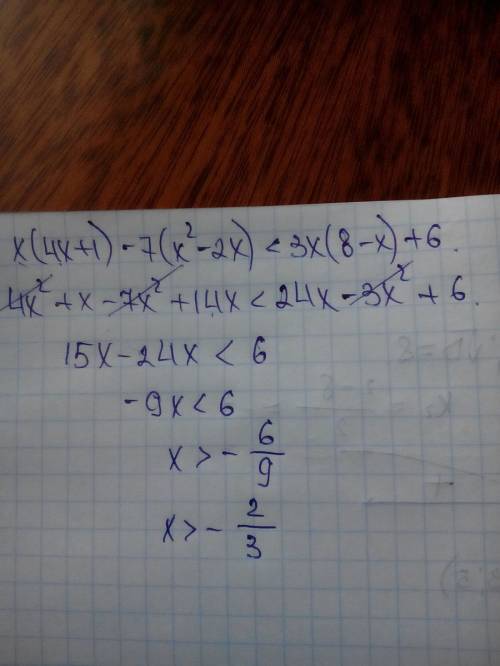 x(4x+1) - 7(x²-2x) < 3x(8-x)+6.
4x² + x - 7x² + 14x < 24x - 3x² + 6.
15x - 24x < 6
-9x < 6
x > - 6/9
x > - 2/3